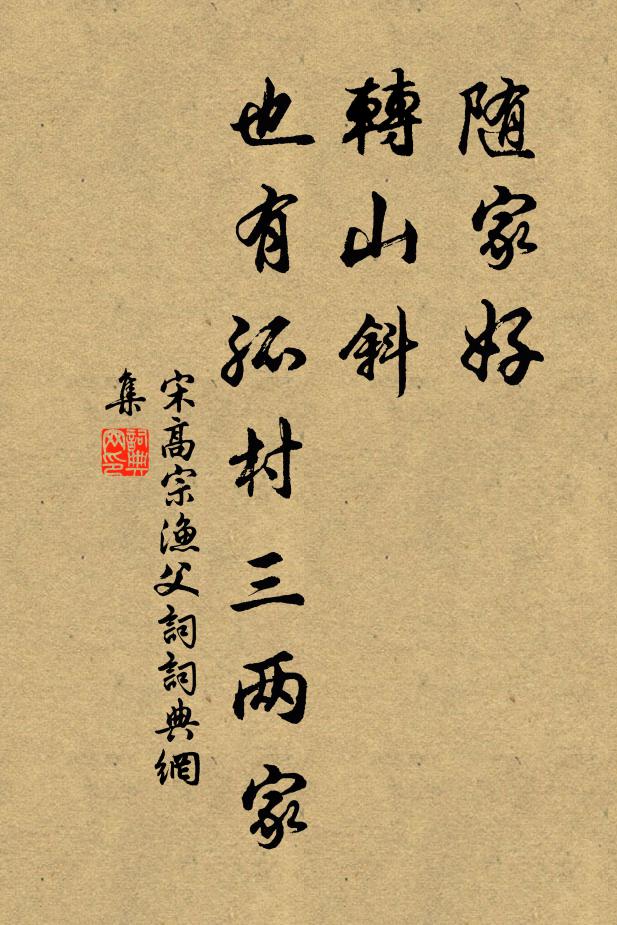 随家好
轉山斜
也有孤村三两家
宋高宗漁父詞詞典網
集
詞典
网印